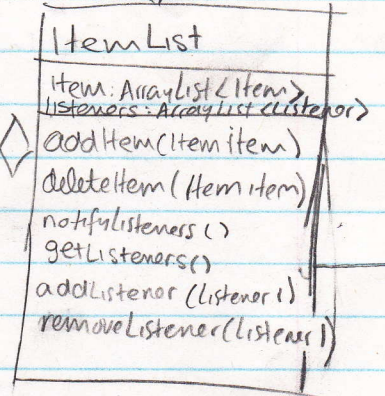 ItemList
Item: ArrayList<Item>
listeners: ArrayList<Listener>
addItem(Item item)
deleteItem(Item item)
notifyListeners()
getListeners()
addListener(listener l)
removeListener(listener l)